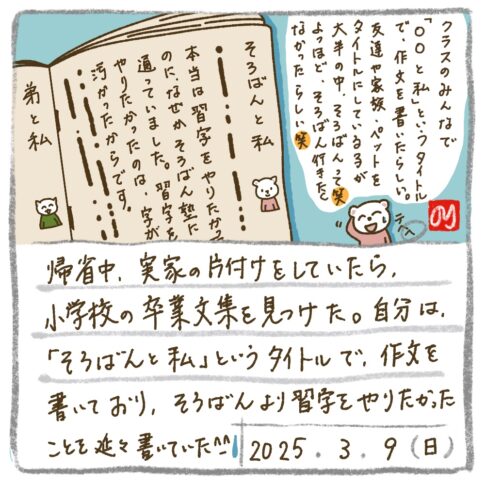 クラスのみんなで
「〇〇と私」というタイトル
で、作文を書いたらしい。
友達や家族、ペットを
タイトルにしているるが
大半の中、そろばんって笑
よっほど、そろばん付きた。
なかったらしい笑
テヘ
そろばんと私
本当は習字をやりたかった
のに、なぜかそろばん塾に
通っていました。習字を
やりたかったのは、字が
汚かったからです。
弟と私
帰省中、実家の片付けをしていたら、
小学校の卒業文集を見つけた。自分は、
「そろばんと私」というタイトルで、作文を
書いており、そろばんより習字をやりたかった
ことを延々書いていた^^;
2025.3.9(日)